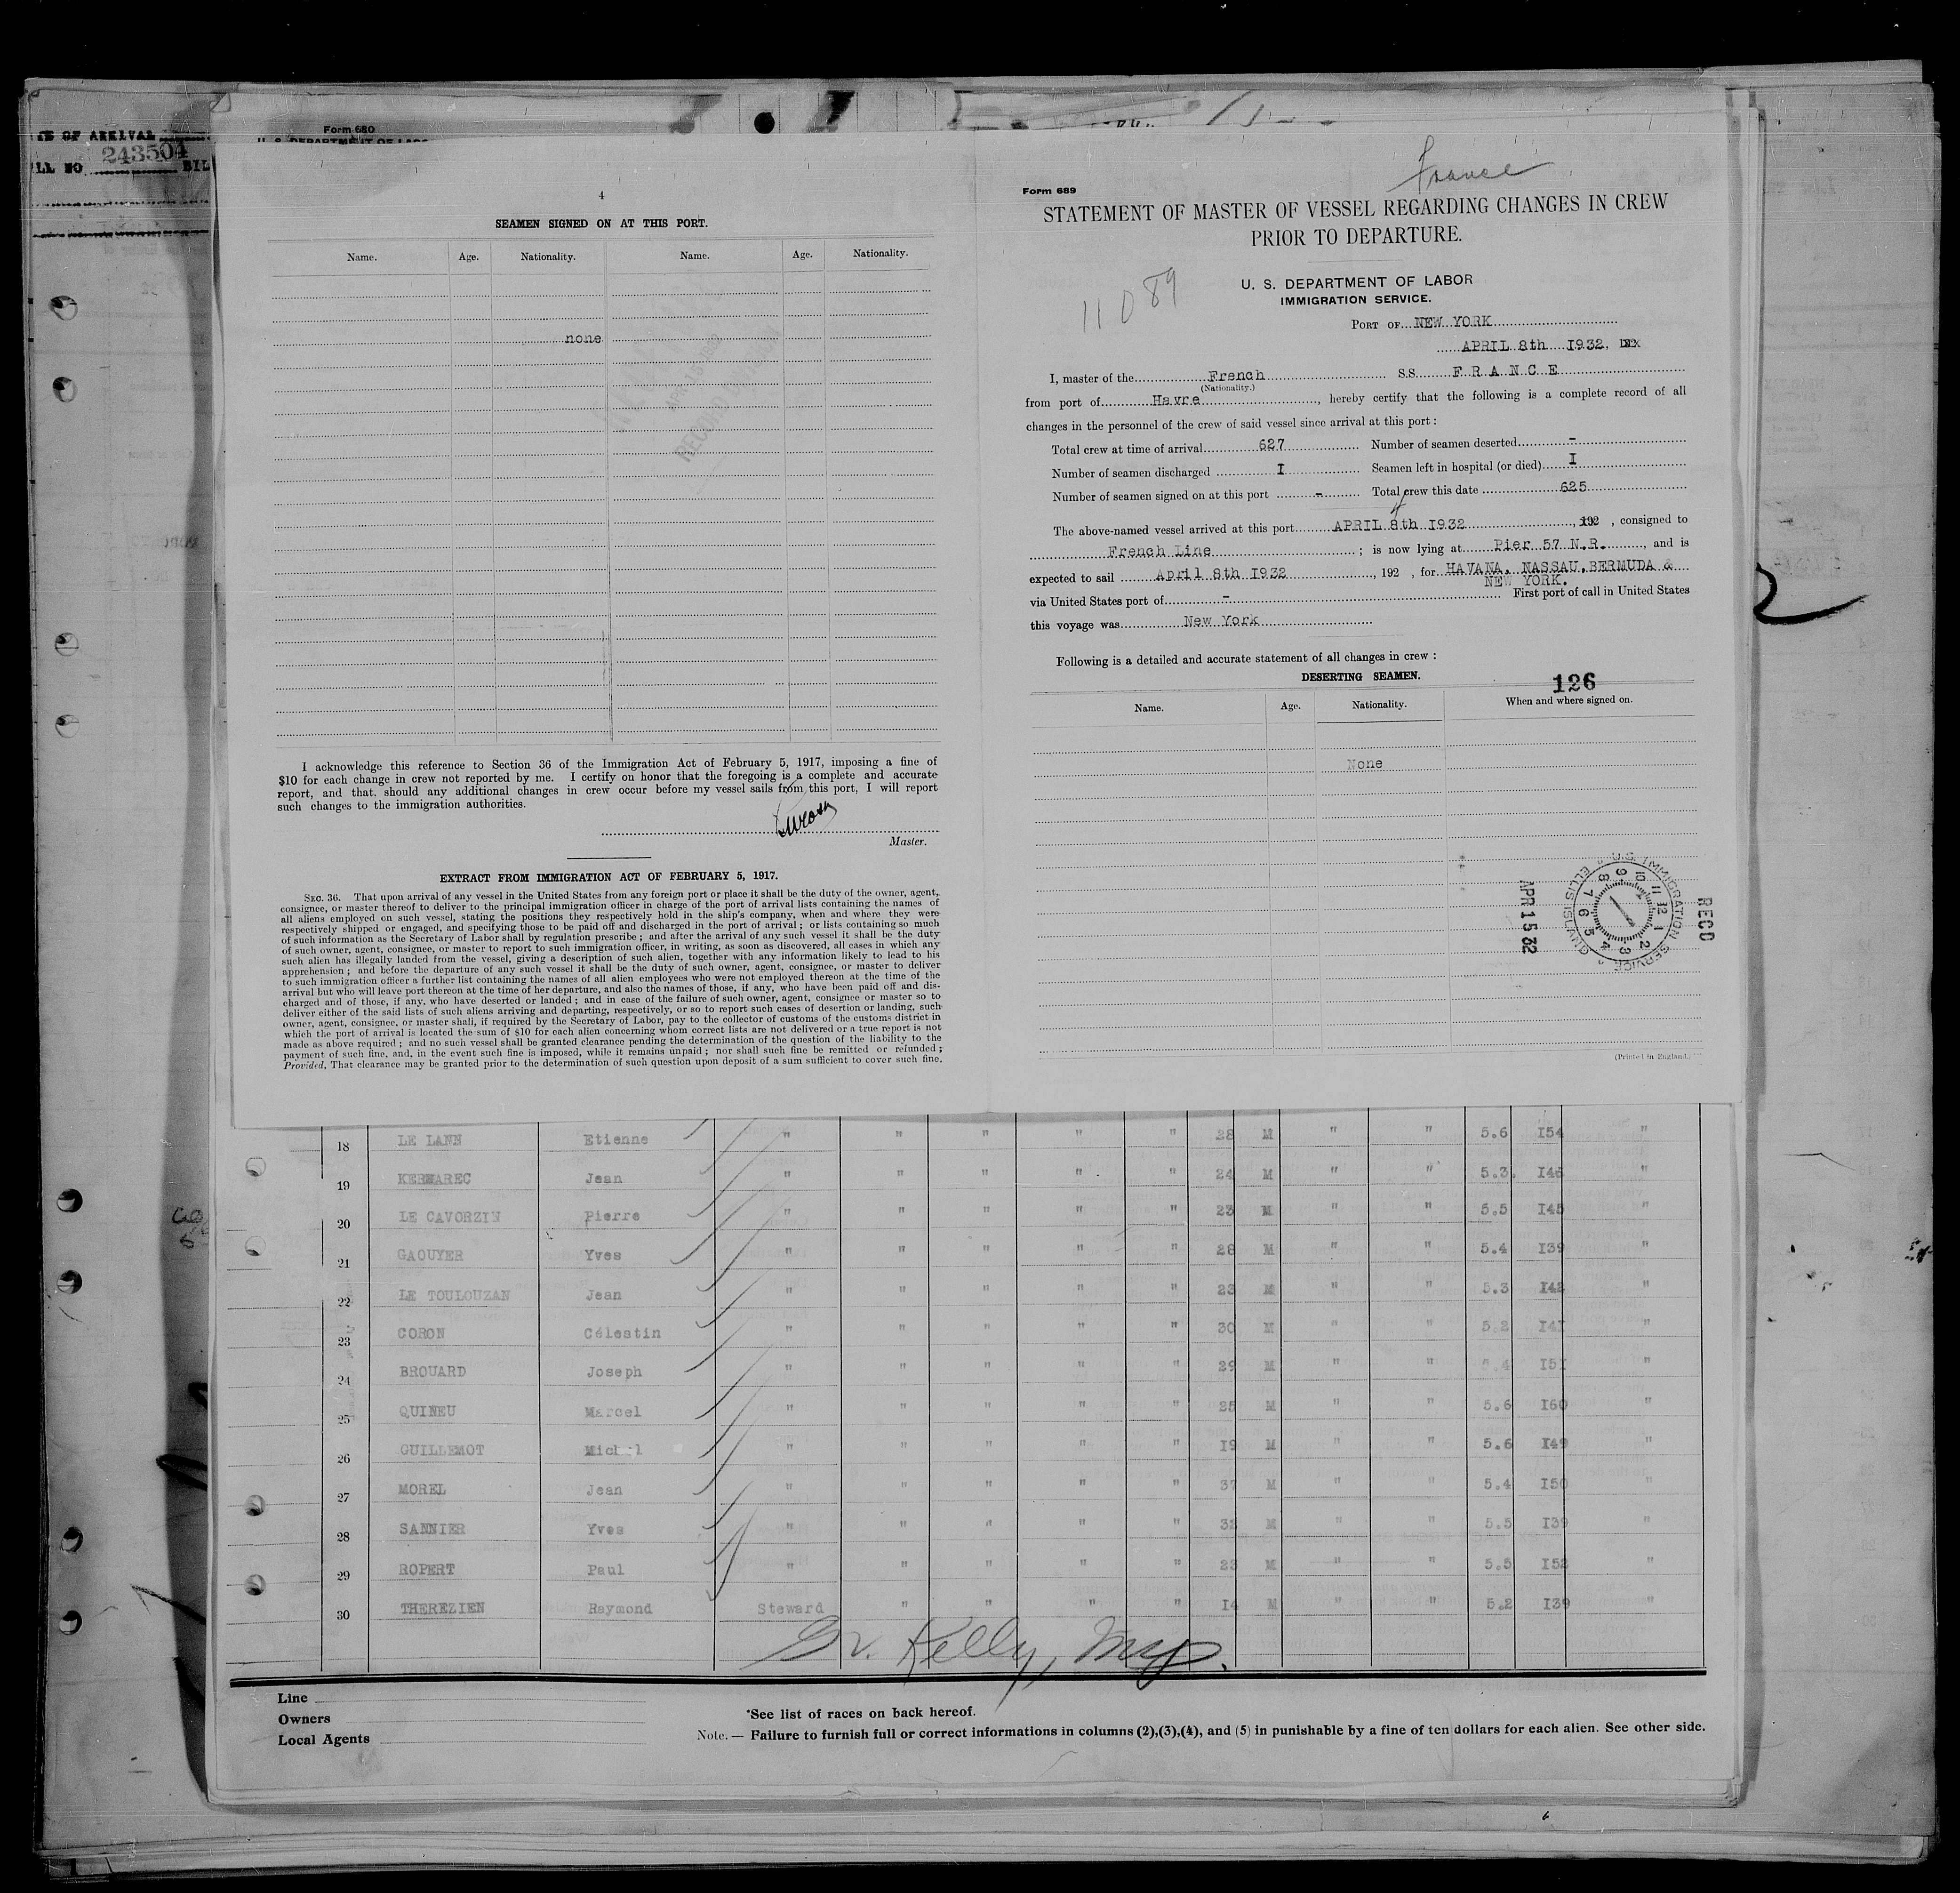 Form 680
U. S. DEPARTMENT OF LABOR
TE OF ARRIVAL
243504
LL NO BIL
4
SEAMEN SIGNED ON AT THIS PORT.
Name. Age. Nationality. Name. Age. Nationality.
none
RECORD DIVISION
I acknowledge this reference to Section 36 of the Immigration Act of February 5, 1917, imposing a fine of
$10 for each change in crew not reported by me. I certify on honor that the foregoing is a complete and accurate
report, and that. should any additional changes in crew occur before my vessel sails from this port, I will report
such changes to the immigration authorities.
Master.
EXTRACT FROM IMMIGRATION ACT OF FEBRUARY 5, 1917.
SEC. 36. That upon arrival of any vessel in the United States from any foreign port or place it shall be the duty of the owner, agent,
consignee, or master thereof to deliver to the principal immigration officer in charge of the port of arrival lists containing the names of
all aliens employed on such vessel, stating the positions they respectively hold in the ship's company, when and where they were
respectively shipped or engaged, and specifying those to be paid off and discharged in the port of arrival; or lists containing so much
of such information as the Secretary of Labor shall by regulation prescribe; and after the arrival of any such vessel it shall be the duty
of such owner, agent, consignee, or master to report to such immigration officer, in writing, as soon as discovered, all cases in which any
such alien has illegally landed from the vessel, giving a description of such alien, together with any information likely to lead to his
apprehension; and before the departure of any such vessel it shall be the duty of such owner, agent, consignee, or master to deliver
to such immigration officer a further list containing the names of all alien employees who were not employed thereon at the time of the
arrival but who will leave port thereon at the time of her departure, and also the names of those, if any, who have been paid off and dis-
charged and of those, if any. who have deserted or landed; and in case of the failure of such owner, agent, consignee or master so to
deliver either of the said lists of such aliens arriving and departing, respectively, or so to report such cases of desertion or landing, such
owner, agent, consignee, or master shall, if required by the Secretary of Labor, pay to the collector of customs of the customs district in
which the port of arrival is located the sum of $10 for each alien concerning whom correct lists are not delivered or a true report is not
made as above required; and no such vessel shall be granted clearance pending the determination of the question of the liability to the
payment of such fine, and, in the event such fine is imposed, while it remains unpaid; nor shall such fine be remitted or refunded;
Provided, That clearance may be granted prior to the determination of such question upon deposit of a sum sufficient to cover such fine.
France
Form 689
STATEMENT OF MASTER OF VESSEL REGARDING CHANGES IN CREW
PRIOR TO DEPARTURE.
11089
U. S. DEPARTMENT OF LABOR
IMMIGRATION SERVICE.
PORT OF NEW YORK
APRIL 8th I932,
I, master of the French S.S. F R A N C E
(Nationality.)
from port of Havre, hereby certify that the following is a complete record of all
changes in the personnel of the crew of said vessel since arrival at this port:
Total crew at time of arrival 627 Number of seamen deserted -
Number of seamen discharged I Seamen left in hospital (or died) I
Number of seamen signed on at this port - Total crew this date 625
4
The above-named vessel arrived at this port APRIL 8th I932, 192 , consigned to
French Line ; is now lying at Pier 57 N.R., and is
expected to sail April 8th I932, 192 , for HAVANA, NASSAU, BERMUDA &
NEW YORK.
via United States port of - First port of call in United States
this voyage was New York
Following is a detailed and accurate statement of all changes in crew:
DESERTING SEAMEN.
126
Name. Age. Nationality. When and where signed on.
None
U.S. IMMIGRATION SERVICE ELLIS ISLAND
12 1 2 3 4 5 6 7 8 9 10 11
APR 15 32
RECD
(Printed in England.)
18 LE LANN Etienne " " " " " 28 M " " 5.6 I54 "
19 KERMAREC Jean " " " " " 24 M " " 5.3. I46 "
20 LE CAVORZIN Pierre " " " " " 23 M " " 5.5 I45 "
21 GAOUYER Yves " " " " " 26 M " " 5.4 I39 "
22 LE TOULOUZAN Jean " " " " " 23 M " " 5.3 I42 "
23 CORON Célestin " " " " " 30 M " " 5.2 I47 "
24 BROUARD Joseph " " " " " 29 M " " .4 I5I "
25 QUINEU Marcel " " " " " 25 M " " 5.6 I60 "
26 GUILLEMOT Michel " " " " " I9 M " " 5.6 I49 "
27 MOREL Jean " " " " " 37 M " " 5.4 I50 "
28 SANNIER Yves " " " " " 32 M " " 5.5 I39 "
29 ROPERT Paul " " " " " 23 M " " 5.5 I52 "
30 THEREZIEN Raymond Steward " " " " I4 M " " 5.2 I39 "
Kelly,
Line
Owners
Local Agents
*See list of races on back hereof.
Note. — Failure to furnish full or correct informations in columns (2),(3),(4), and (5) in punishable by a fine of ten dollars for each alien. See other side.